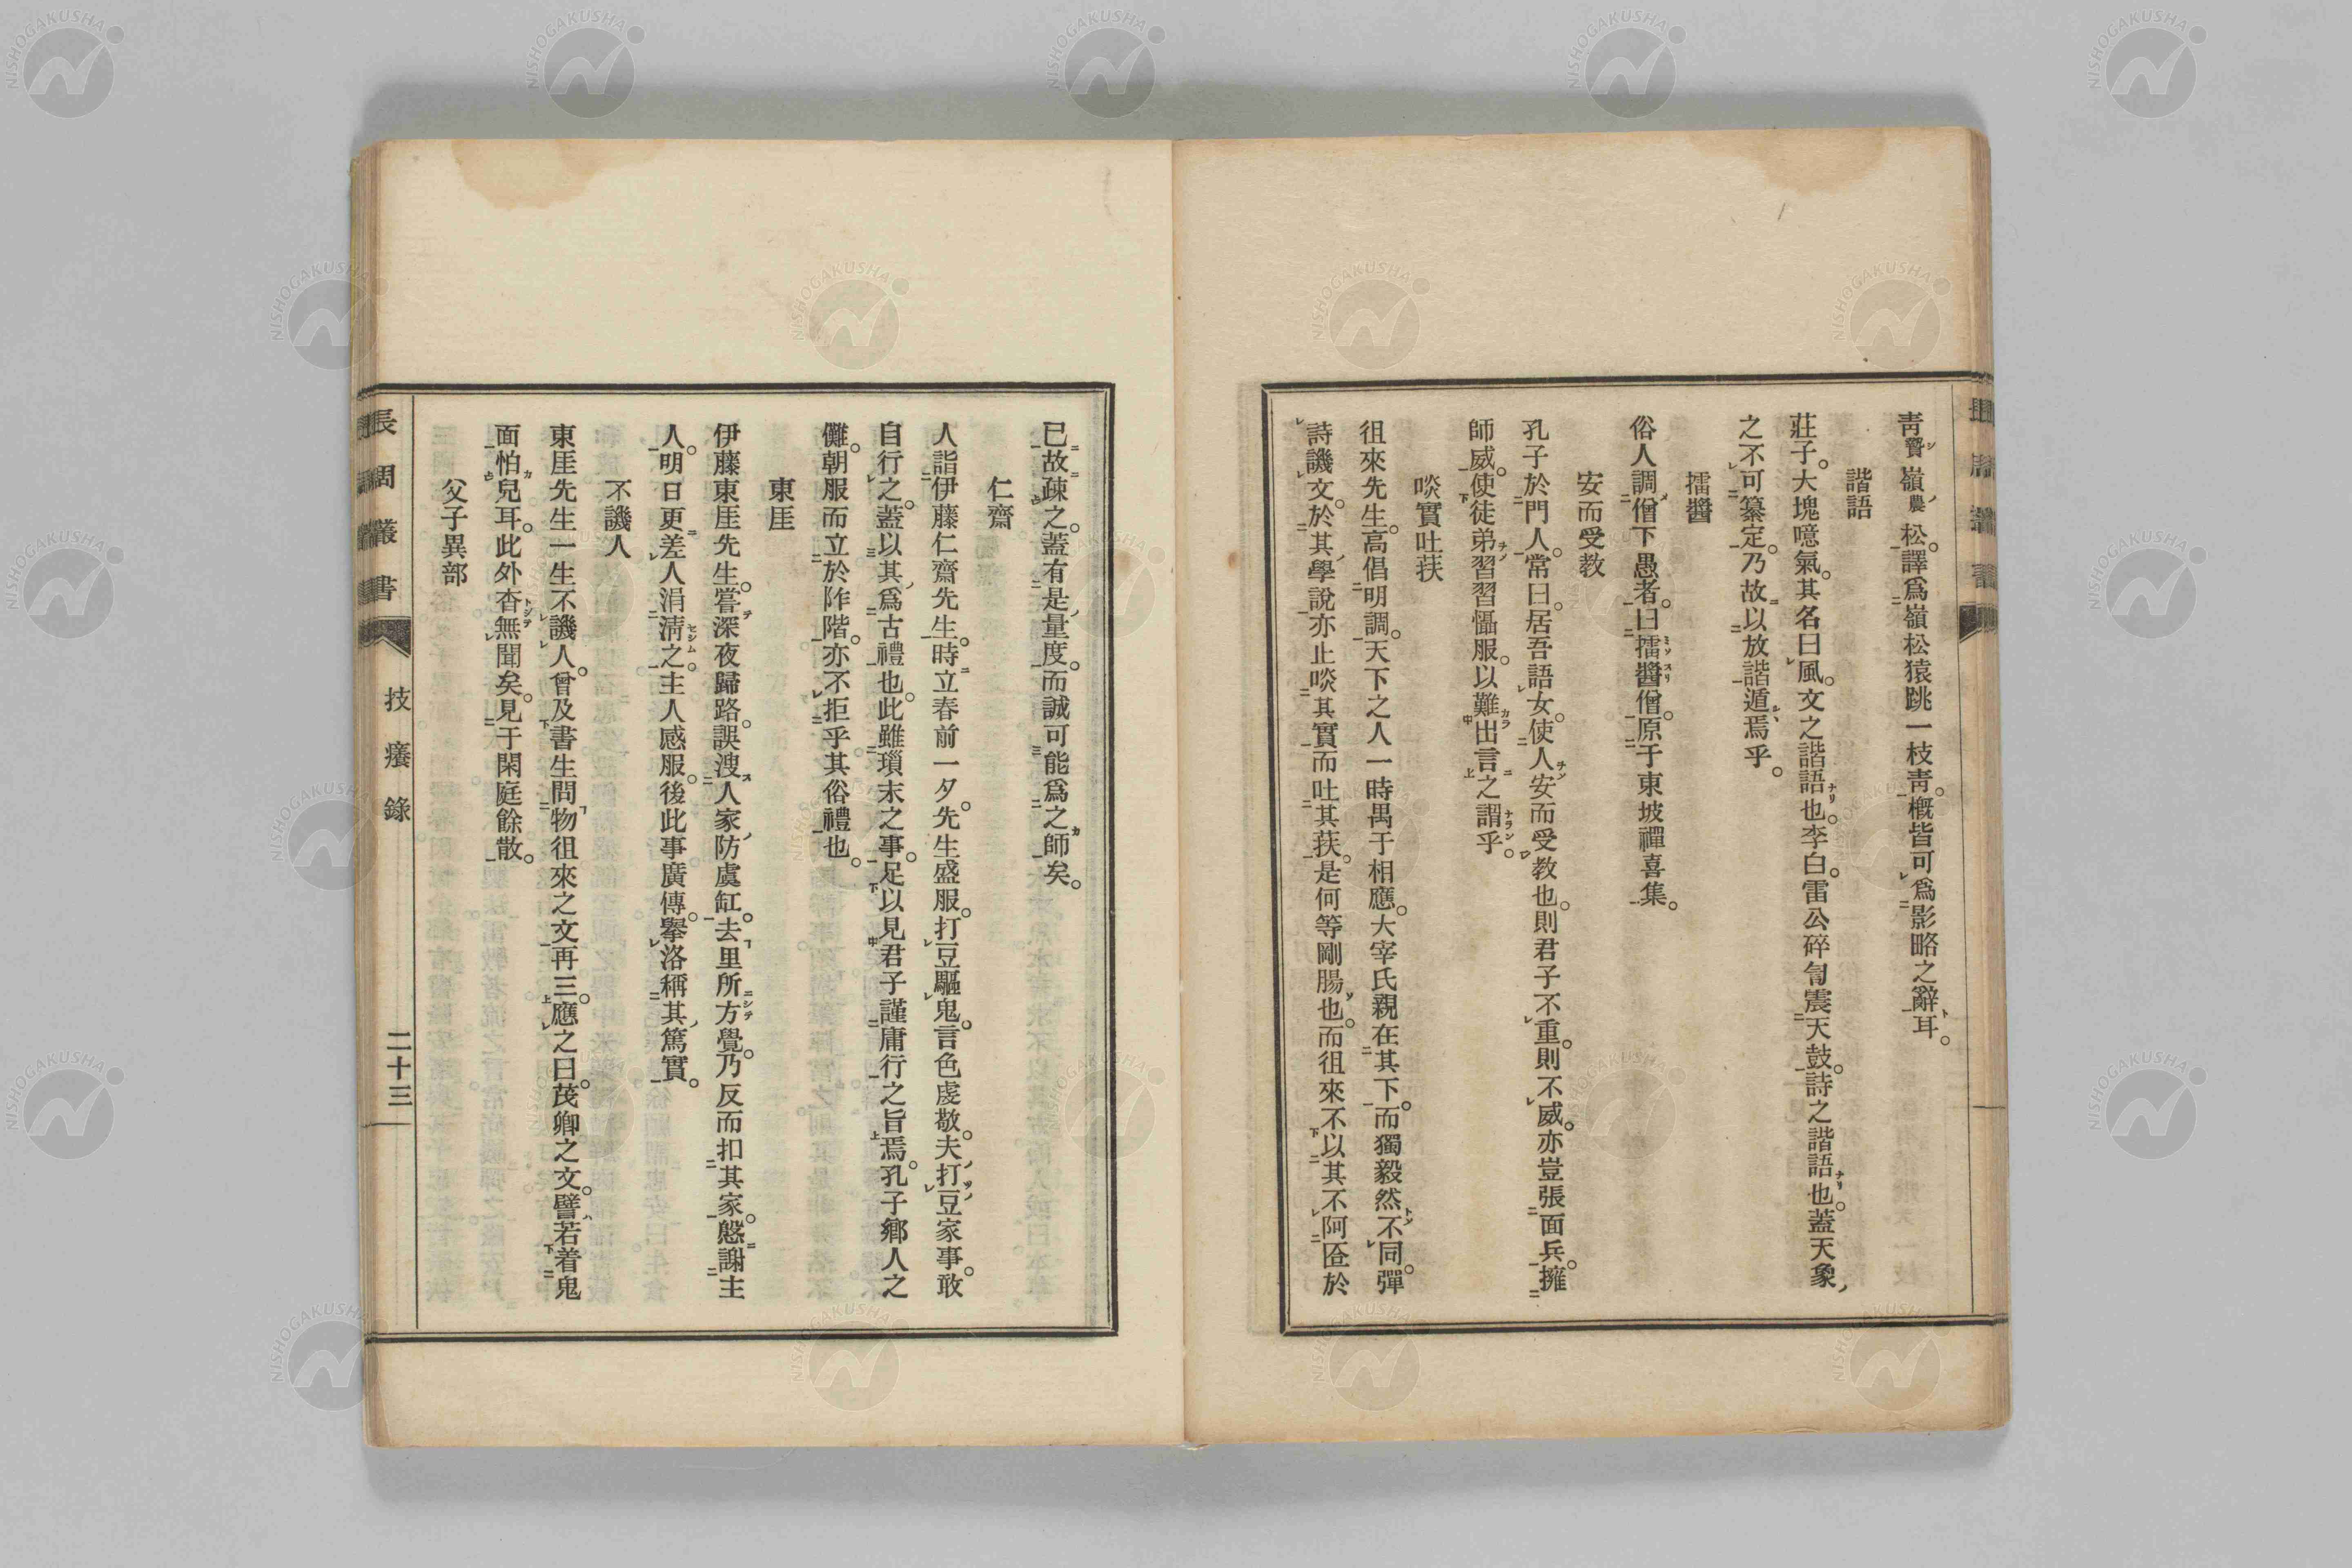 青贇嶺農松。譯爲嶺松猿跳一枝靑。槪皆可爲影略之辭耳。
諧語
莊子。大塊噫氣。其名曰風。文之諧語也。李白。雷公砰訇震天鼓。詩之諧語也。蓋天象
之不可纂定。乃故以放諧遁焉乎。
擂醬
俗人調僧下愚者。曰擂醬僧。原于東坡禪喜集。
安而受教
孔子於門人。常曰。居吾語女。使人安而受教也。則君子不重。則不威。亦豈張面兵。擁
師威。使徒弟習習懾服。以難出言之謂乎。
啖實吐莢
徂來先生。高倡明調。天下之人一時禺于相應。大宰氏親在其下。而獨毅然不同。彈
詩譏文。於其學說亦止啖其實而吐其莢。是何等剛腸也。而徂來不以其不阿匼於
已。故疎之。蓋有是量度。而誠可能爲之師矣。
仁齋
人詣伊藤仁齋先生。時立春前一夕。先生盛服。打豆驅鬼。言色虔敬。夫打豆家事。敢
自行之。蓋以其爲古禮也。此雖瑣末之事。足以見君子謹庸行之旨焉。孔子鄉人之
儺。朝服而立於阼階。亦不拒乎其俗禮也。
東厓
伊藤東厓先生。嘗深夜歸路。誤溲人家防虞缸。去里所方覺。乃反而扣其家。慇謝主
人。明日更差人涓淸之。主人感服。後此事廣傳。擧洛稱其篤實。
不譏人
東厓先生一生不譏人。曾及書生問物徂來之文再三。應之曰。茂卿之文。譬若着鬼
面怕兒耳。此外杳無聞矣。見于閑庭餘散。
父子異部
長周叢書
技癢錄
二十三